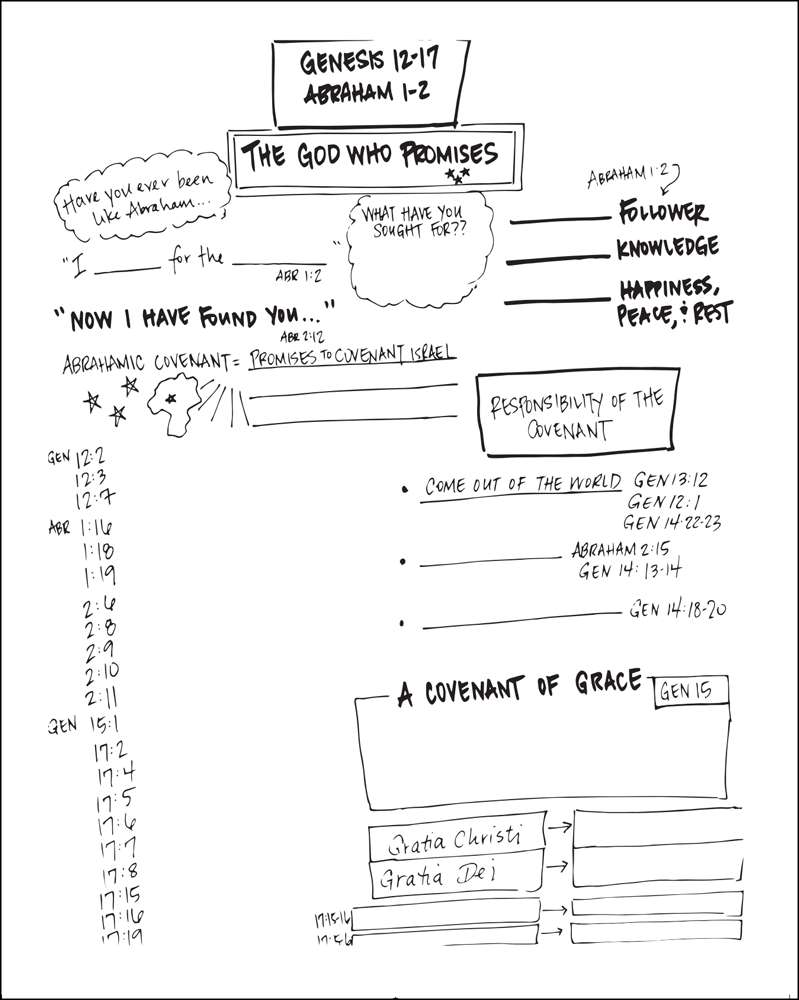 GENESIS 12-17
ABRAHAM 1-2
THE GOD WHO PROMISES
Have you ever been
like Abraham...
"I ______ for the ________"
ABR 1:2
WHAT HAVE YOU
SOUGHT FOR??
ABRAHAM 1:2
FOLLOWER
KNOWLEDGE
HAPPINESS,
PEACE, & REST
"NOW I HAVE FOUND YOU..."
ABR 2:12
ABRAHAMIC COVENANT = PROMISES TO COVENANT ISRAEL
GEN 12:2
12:3
12:7
ABR 1:16
1:18
1:19
2:6
2:8
2:9
2:10
2:11
GEN 15:1
17:2
17:4
17:5
17:6
17:7
17:8
17:15
17:16
17:19
RESPONSIBILITY OF THE
COVENANT
• COME OUT OF THE WORLD GEN 13:12
GEN 12:1
GEN 14:22-23
• ABRAHAM 2:15
GEN 14:13-14
• GEN 14:18-20
A COVENANT OF GRACE
GEN 15
Gratia Christi
Gratia Dei
17:15-16
17:5-6